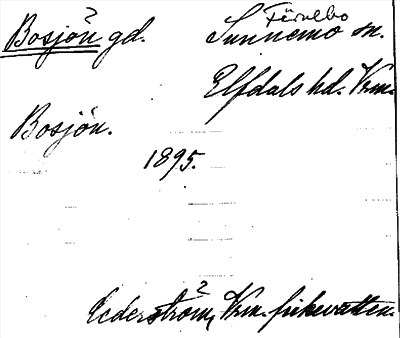 Färnebo
Bosjön gd. Sunnemo sn.
Elfdals hd. Vrm.
Bosjön.
1895.
Cederström, Vrm. fiskevatten.